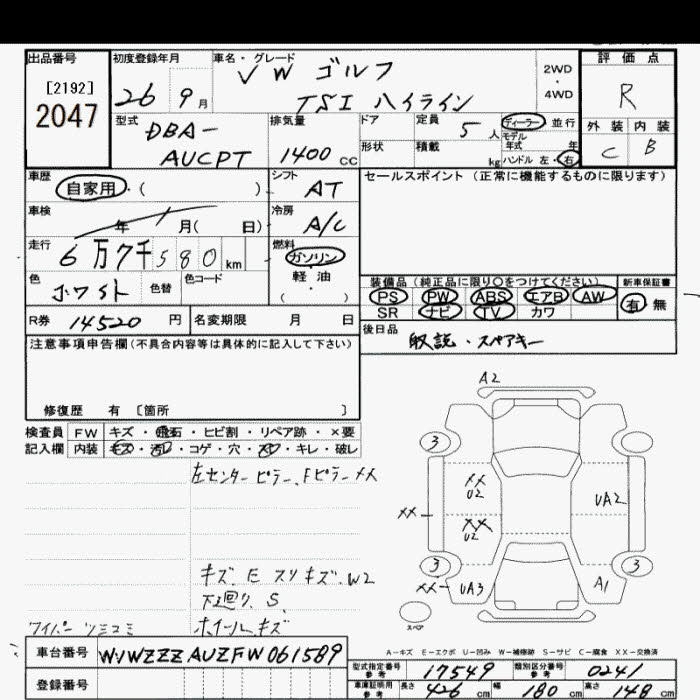 出品番号
[2192]
2047
初度登録年月
26 9月
車名・グレード
VW ゴルフ
TSI ハイライン
2WD
・
4WD
評価点
R
外装 内装
C B
型式
DBA-
AUCPT
排気量
1400 CC
ドア
形状
定員 5 人
積載 kg
ディーラー 並行
モデル
年式 年
ハンドル 左・右
車歴
自家用・( )
シフト
AT
セールスポイント (正常に機能するものに限ります)
車検
年 月( 日)
冷房
A/C
走行
6万7千580 km
燃料
ガソリン
軽・油
( )
色
ホワイト
色替
色コード
装備品(純正品に限り○をつけてください)
PS PW ABS エアB AW
SR ナビ TV カワ
新車保証書
有 無
R券 14520 円
名変期限 月 日
後日品
取説・スペアキー
注意事項申告欄(不具合内容等は具体的に記入して下さい)
修復歴 有 〔箇所 〕
検査員 FW キズ・飛石・ヒビ割・リペア跡・×要
記入欄 内装 キズ・汚レ・コゲ・穴・スレ・キレ・破レ
左センターピラー、Fピラーメメ
キズ、E スリキズ、W2
下廻り、S、
ワイパー ツミコミ
ホイールキズ
A2
3
XX
U2
UA2
XX
XX
U2
3
3
XX
UA3
A1
スペア
A-キズ E-エクボ U-凹み W-補修跡 S-サビ C-腐食 XX-交換済
車台番号 WVWZZZAUZFW061589
登録番号
型式指定番号
参考
17549
類別区分番号
参考
0241
車庫証明用
参考
長さ 426 cm 幅 180 cm 高さ 148 cm